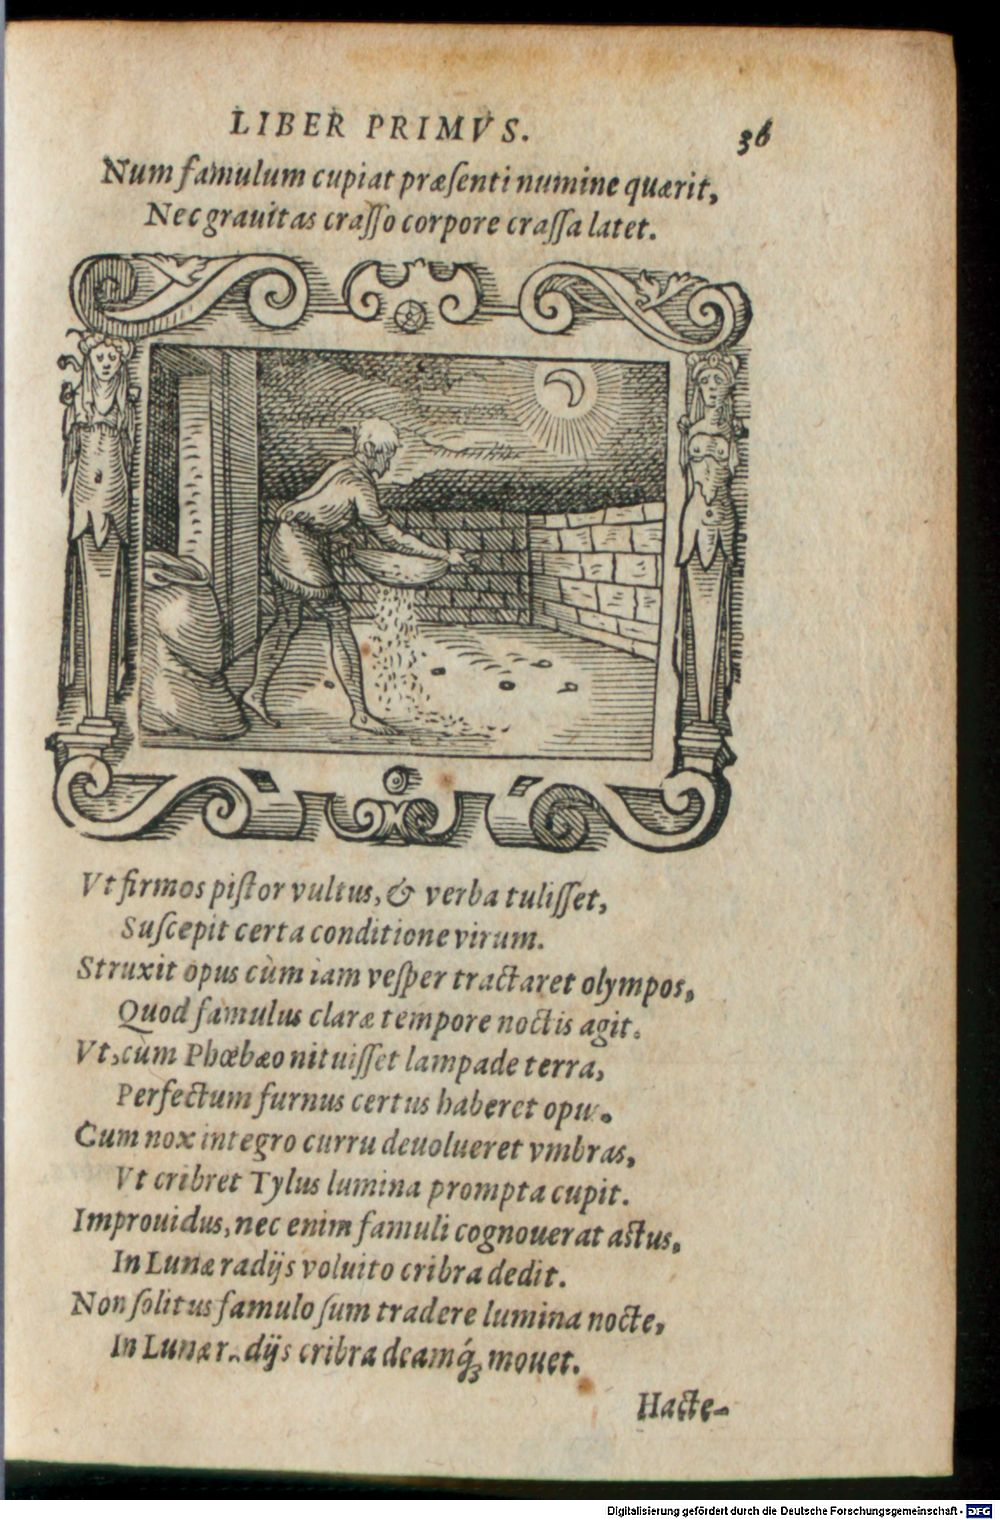 LIBER PRIMVS. 36
Num famulum cupiat præſenti numine quærit,
Nec grauitas craſſo corpore craſſa latet.
Vt firmos piſtor vultus, & verba tuliſſet,
Suſcepit certa conditione virum.
Struxit opus cùm iam veſper tractaret olympos,
Quod famulus claræ tempore noctis agit.
Vt, cùm Phœbæo nituiſſet lampade terra,
Perfectum furnus certus haberet opus.
Cum nox integro curru deuolueret vmbras,
Vt cribret Tylus lumina prompta cupit.
Improuidus, nec enim famuli cognouerat actus,
In Lunæ radijs voluito cribra dedit.
Non ſolitus famulo ſum tradere lumina nocte,
In Lunæ radijs cribra deamq́; mouet.
Hacte-
Digitalisierung gefördert durch die Deutsche Forschungsgemeinschaft - DFG